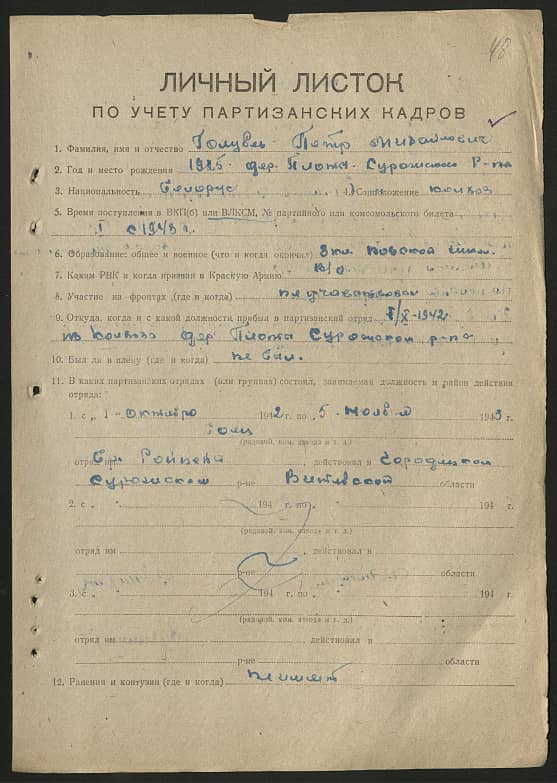 48
ЛИЧНЫЙ ЛИСТОК
ПО УЧЕТУ ПАРТИЗАНСКИХ КАДРОВ
1. Фамилия, имя и отчество Голубь Петр Михайлович
2. Год и место рождения 1925 дер. Плота Сурожского р-на
3. Национальность Белорус 4. Соцположение колхоз
5. Время поступления в ВКП(б) или ВЛКСМ, № партийного или комсомольского билета
с 1943 г.
6. Образование: общее и военное (что и когда окончил) 3 кл.
7. Каким РВК и когда призван в Красную Армию н/о
8. Участие на фронтах (где и когда) не участвовал
9. Откуда, когда и с какой должности прибыл в партизанский отряд 1/X-1942
из колхоза дер Плота Сурожского р-на
10. Был ли в плену (где и когда) не был.
11. В каких партизанских отрядах (или группах) состоял, занимаемая должность и район действия
отряда:
1. с 1 октября 1942 г. по 5 ноября 1943 г.
(рядовой, ком. взвода и т. д.)
отряд им , действовал в Городокском
Сурожском р-не Витебской области
2. с 194 г. по 194 г.
(рядовой, ком. взвода и т. д.)
отряд им , действовал в
р-не области
3. с 194 г. по 194 г.
(рядовой, ком. взвода и т. д.)
отряд им , действовал в
р-не области
12. Ранения и контузии (где и когда) не имеет